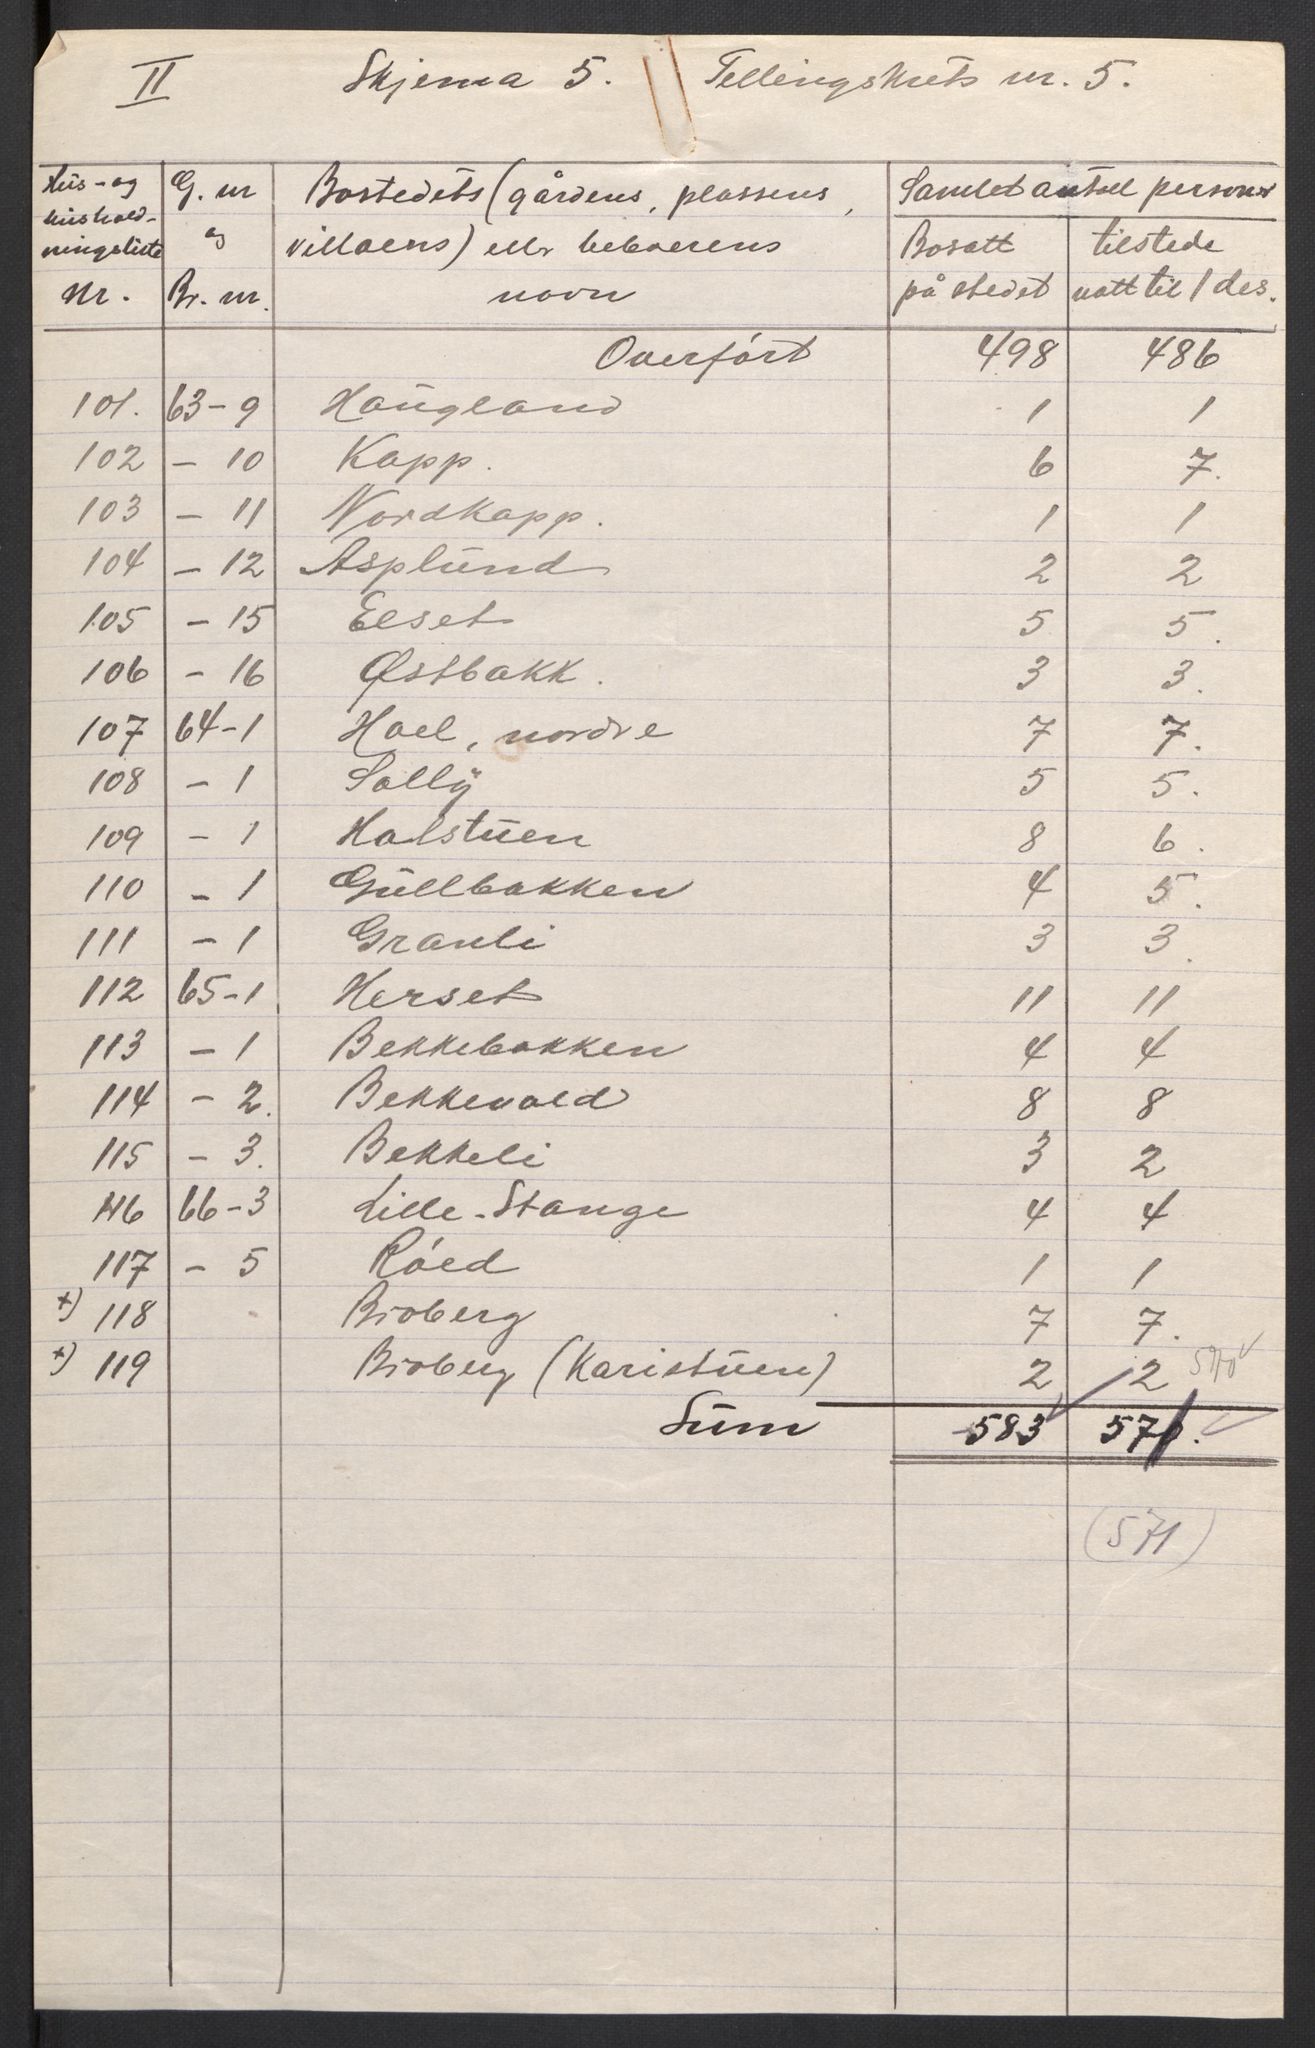 II Skjema 5. Tellingskrets nr. 5.
Hus- og G. nr Bostedets (gårdens, plassens, Samlet antall personer
hushold- og villaens) eller beboerens Bosatt tilstede
ningsliste
Nr. Br. nr. navn på stedet natt til 1 des.
Overført 498 486
101. 63-9 Haugland 1 1
102 - 10 Kapp. 6 7.
103 - 11 Nordkapp. 1 1
104 - 12 Asplund 2 2
105 - 15 Elset 5 5.
106 - 16 Østbakk. 3 3.
107 64-1 Hoel, nordre 7 7.
108 - 1 Solly 5 5.
109 - 1 Holstuen 8 6.
110 - 1 Gullbakken 4 5.
111 - 1 Granli 3 3.
112 65-1 Herset 11 11
113 - 1 Bekkebakken 4 4
114 - 2. Bekkevold 8 8
115 - 3. Bekkeli 3 2
116 66-3 Lille-Stange 4 4
117 - 5 Róed 1 1
+) 118 Broberg 7 7.
+) 119 Broberg (Karistuen) 2 2 570
Sum 583 571.
(571)